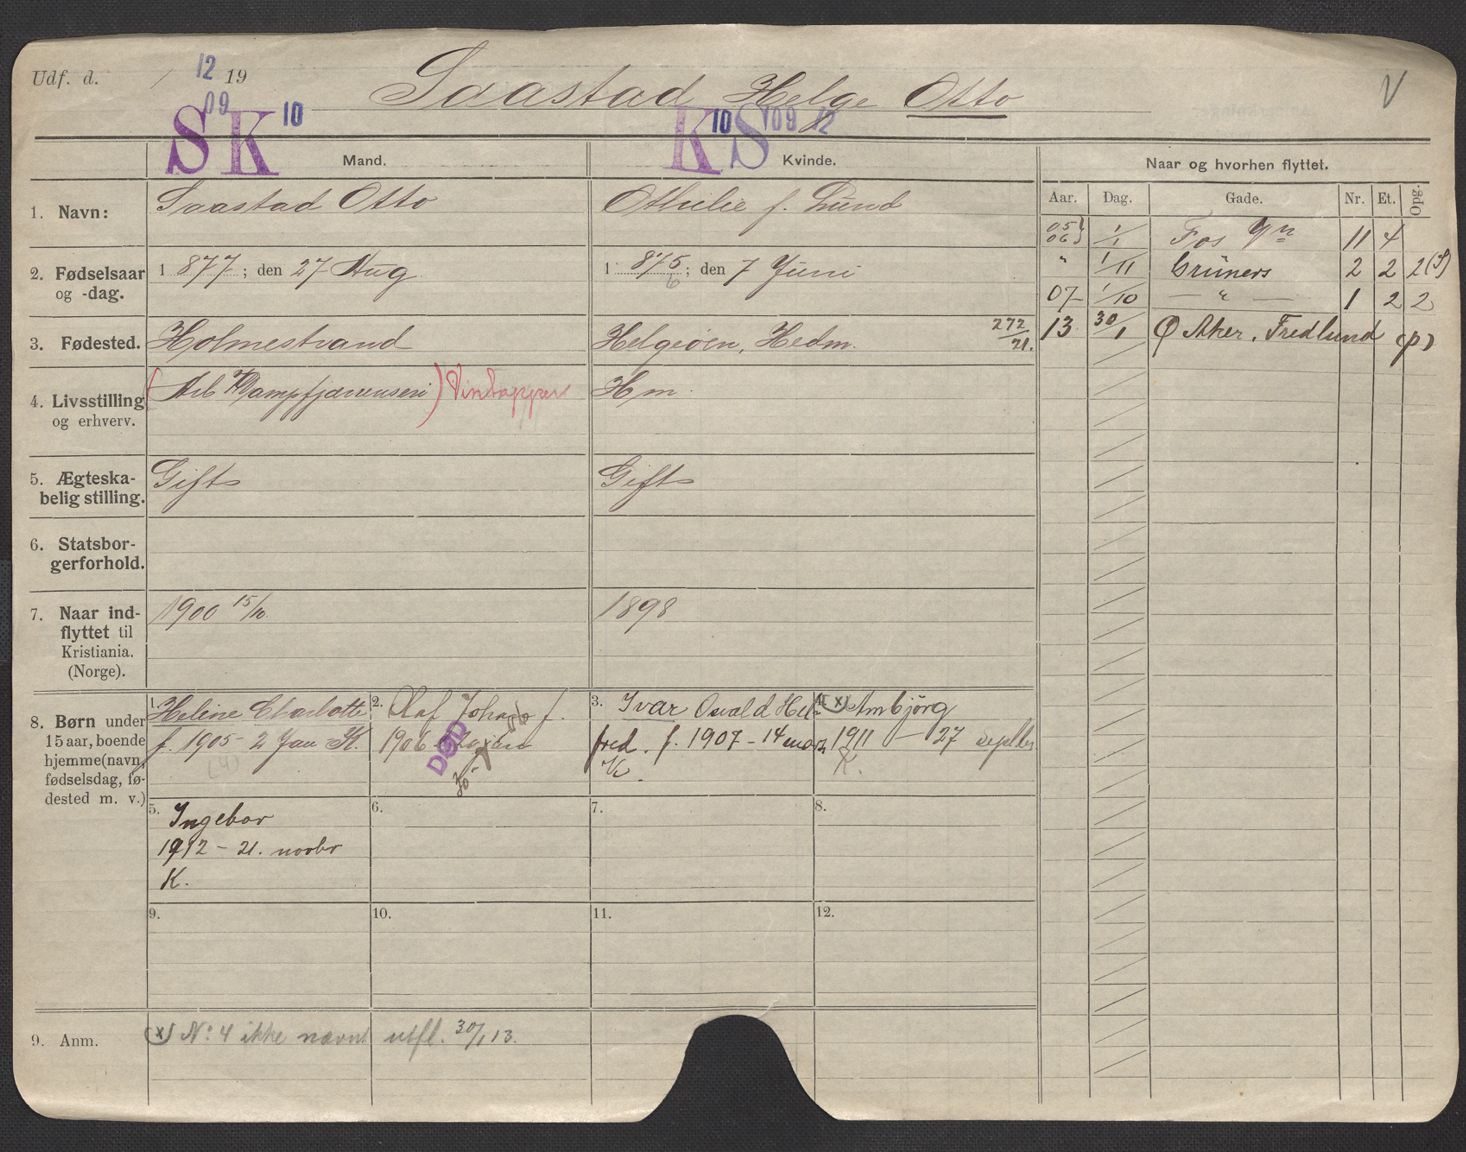 Udf. d. / 12 19 09
Saastad Helge Otto
V
S K 10
K 10 S 09 12
Mand.
Kvinde.
Naar og hvorhen flyttet.
Aar. Dag. Gade. Nr. Et. Opg.
1. Navn:
Saastad Otto
Othelie f. Lund
2. Fødselsaar og -dag.
1 877 ; den 27 Aug
1 875 ; den 7 Juni
6
3. Fødested.
Holmestrand
Helgeøen, Hedm. 272/21.
4. Livsstilling og erhverv.
(Arb Dampkjøkkenet) Vintapper
Hm.
5. Ægteskabelig stilling.
Gift
Gift
6. Statsborgerforhold.
7. Naar indflyttet til Kristiania. (Norge).
1900 15/10.
1898
05
06 1/1 Fos gn 11 4
" 1/11 Grüners 2 2 2 (S)
07 1/10 — " — 1 2 2
13 30/1 Ø Aker. Fredlund (p)
8. Børn under 15 aar, boende hjemme (navn, fødselsdag, fødested m. v.)
1. Helene Charlotte
f. 1905 - 2 Jan K.
(4)
2. Olaf f.
1906
DØD
3. Ivar Osvald Hel-
fred. f. 1907 - 14 mars
K.
4. (x) Ambjörg
1911 - 27 septbr
K.
5. Ingebor
1912 - 21. novbr
K.
6.
7.
8.
9.
10.
11.
12.
9. Anm.
(x) No 4 ikke nævnt utfl. 30/1 13.